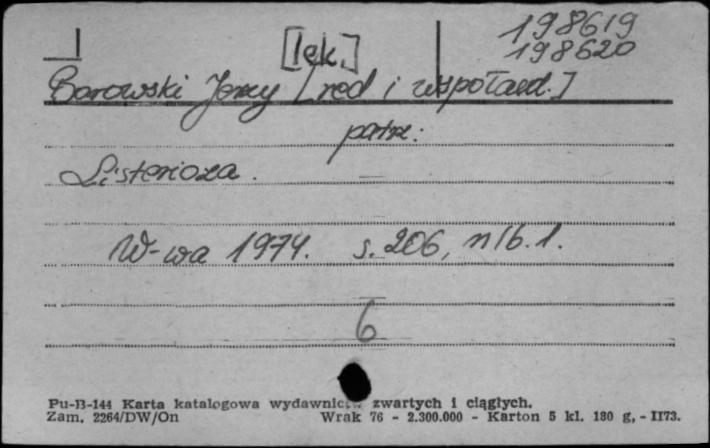 [lek.] 198619
198620
Borowski Jerzy [red i współaut.]
patrz:
Listerioza.
W-wa 1974. s. 206, nlb. 1.
6
Pu-B-144 Karta katalogowa wydawnictw zwartych i ciągłych.
Zam. 2264/DW/On Wrak 76 - 2.300.000 - Karton 5 kl. 180 g, - II73.